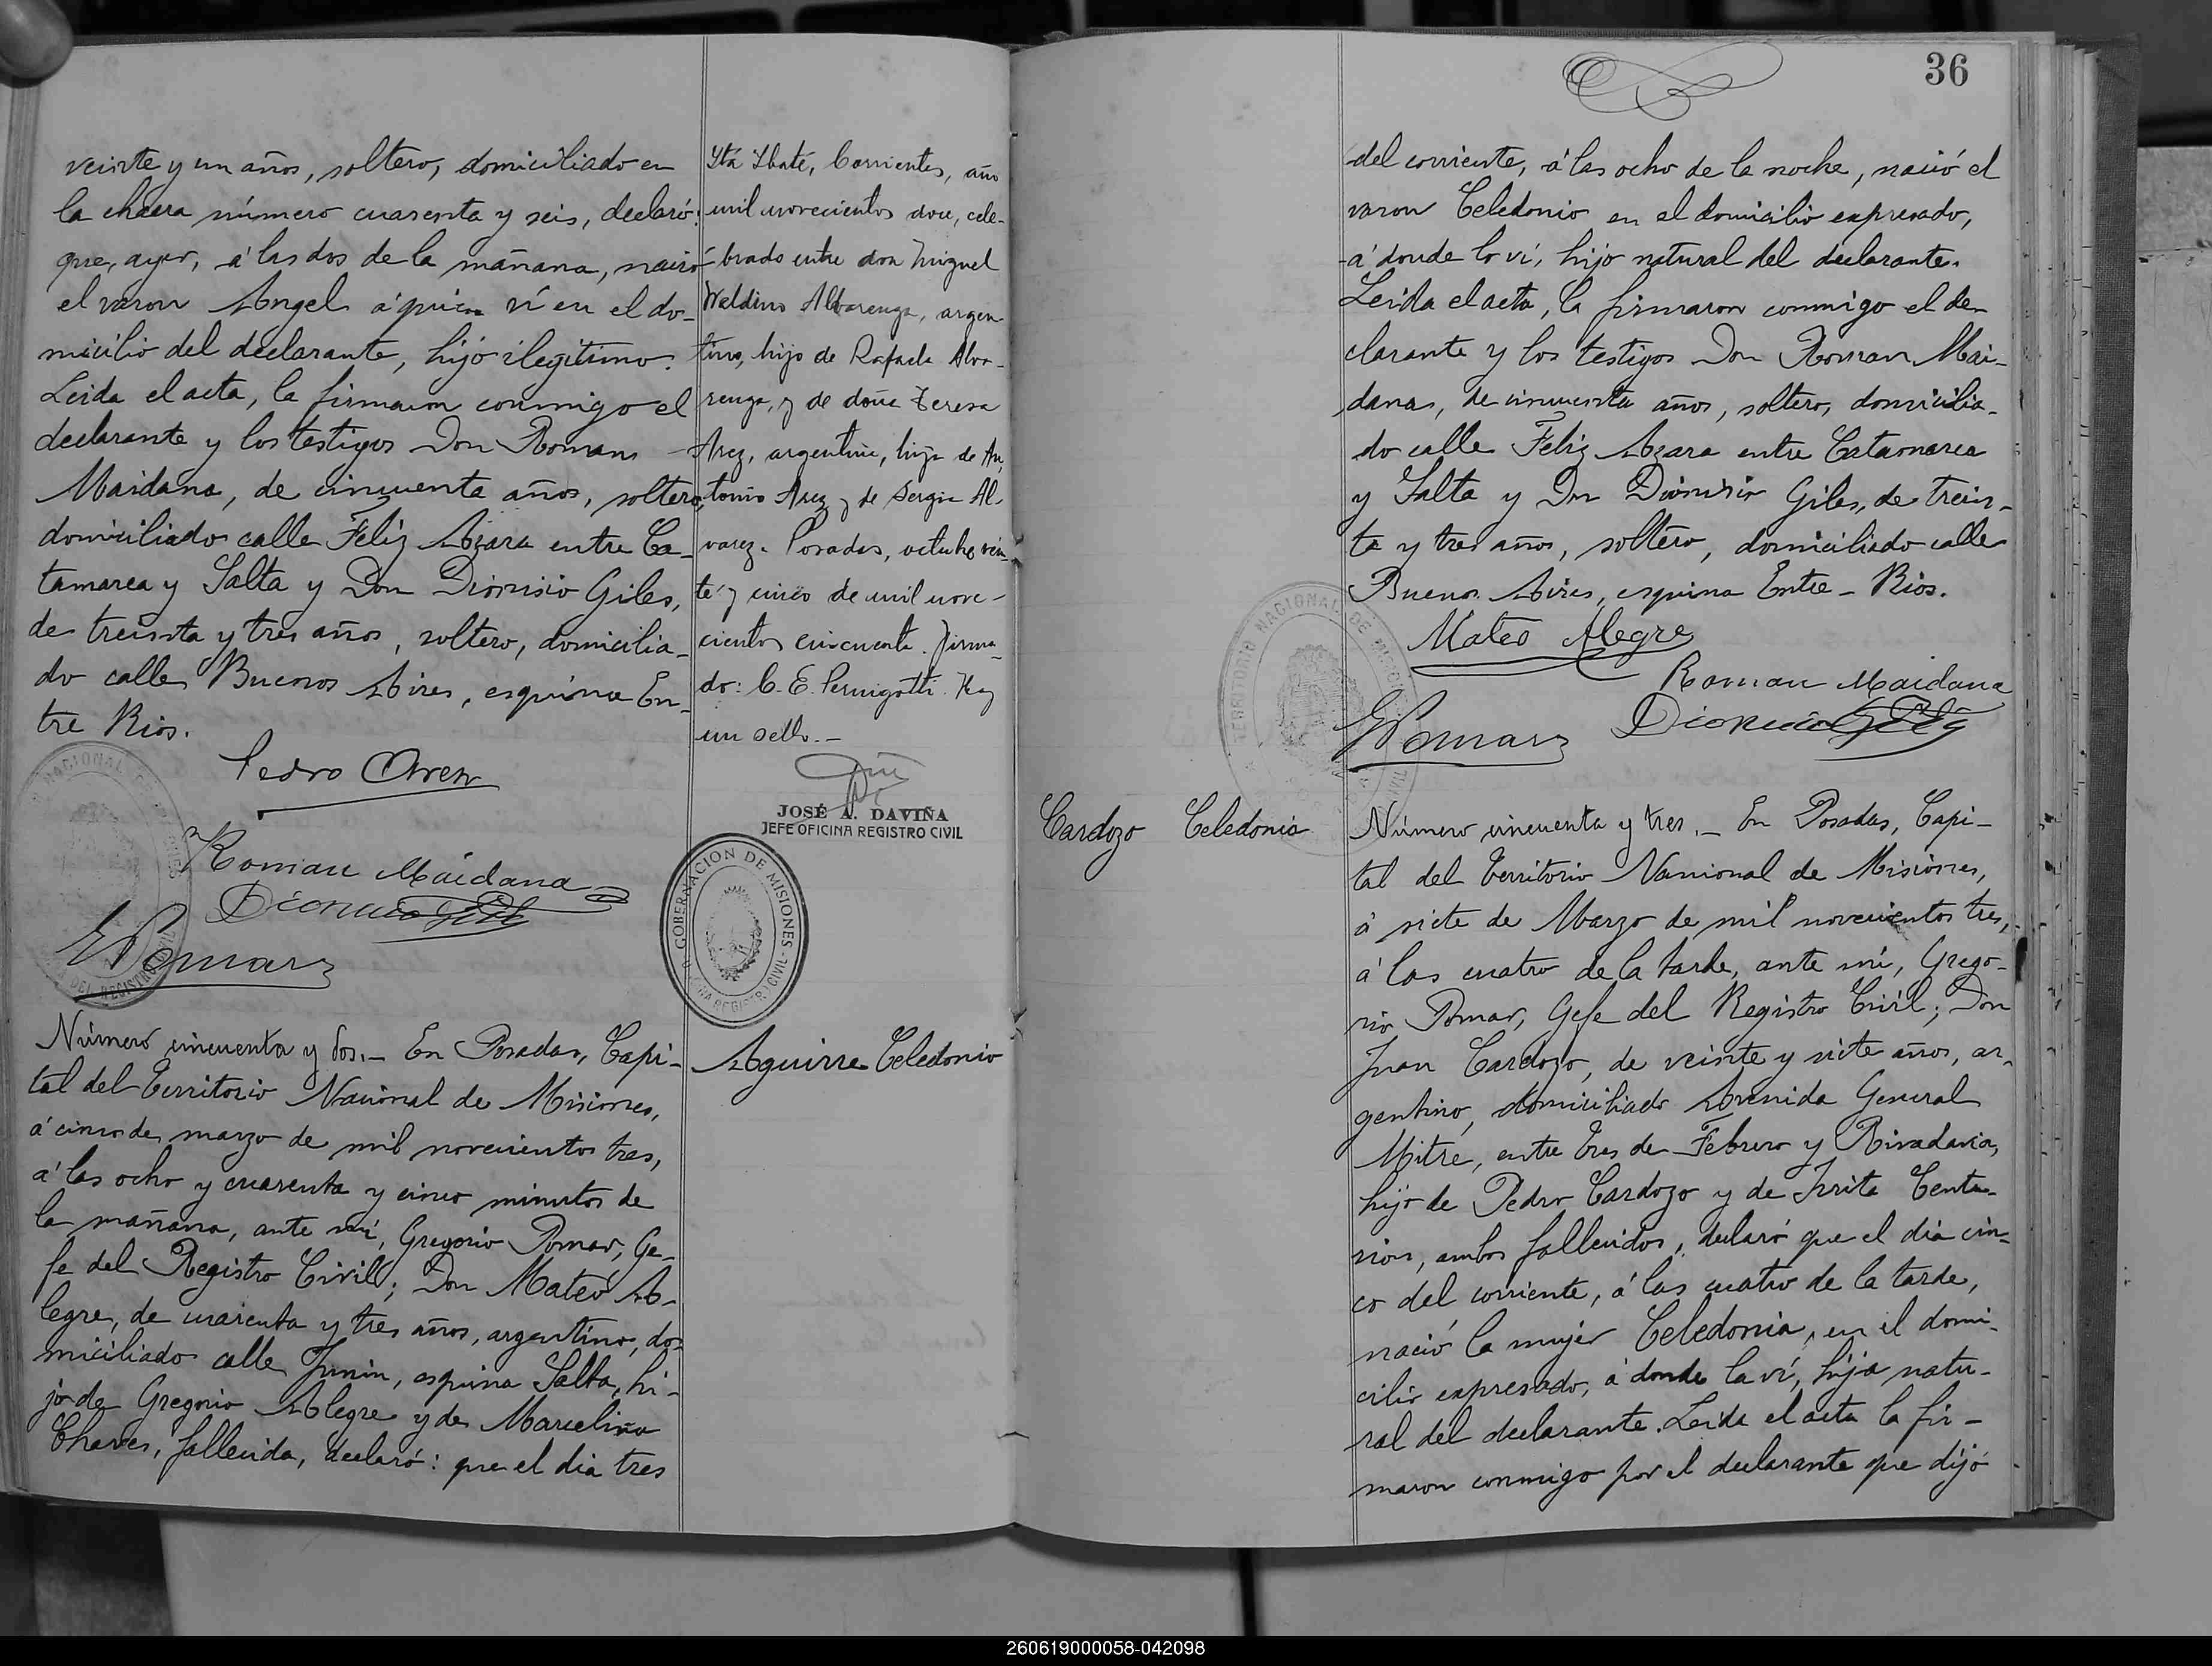 veinte y un años, soltero, domiciliado en
la chacra número cuarenta y seis, declaró:
que, ayer, á las dos de la mañana, nació
el varon Angel á quien ví en el do-
micilio del declarante, hijo ilegítimo.
Leida el acta, la firmaron conmigo el
declarante y los testigos Don Roman
Maidana, de cincuenta años, soltero,
domiciliado calle Feliz Azara entre Ca-
tamarca y Salta y Don Dionisio Giles,
de treinta y tres años, soltero, domicilia-
do calle Buenos Aires, esquina En-
tre Rios.
Pedro
Roman Maidana
Dionicio Giles
GPomar
Número cincuenta y dos.- En Posadas, Capi-
tal del Territorio Nacional de Misiones,
á cinco de marzo de mil novecientos tres,
á las ocho y cuarenta y cinco minutos de
la mañana, ante mí, Gregorio Pomar, Ge-
fe del Registro Civil; Don Mateo A-
legre, de cuarenta y tres años, argentino, do-
miciliado calle Junin, esquina Salta, hi-
jo de Gregorio Alegre y de Marcelina
Chaves, fallecida, declaró: que el dia tres
Ytá Ybaté, Corrientes, año
mil novecientos doce, cele-
brado entre don Miguel
Waldino Alvarenga, argen-
tino, hijo de Rafaela Alva-
renga, y de doña Teresa
Arez, argentina, hija de An-
tonio Arez y de Sergia Al-
varez. Posadas, octubre vein-
te y cinco de mil nove-
cientos cincuenta. Firma-
do: C. E. Pernigotti. Hay
un sello.-
JOSÉ A. DAVIÑA
JEFE OFICINA REGISTRO CIVIL
GOBERNACION DE MISIONES
OFICINA REGISTRO CIVIL
Aguirre Celedonio
36
del corriente, á las ocho de la noche, nació el
varon Celedonio en el domicilio expresado,
á donde lo ví, hijo natural del declarante.
Leida el acta, la firmaron conmigo el de-
clarante y los testigos Don Roman Mai-
dana, de cincuenta años, soltero, domicilia-
do calle Feliz Azara entre Catamarca
y Salta y Don Dionisio Giles, de trein-
ta y tres años, soltero, domiciliado calle
Buenos Aires, esquina Entre-Rios.
Mateo Alegre
Roman Maidana
Dionicio Giles
GPomar
Cardozo Celedonia
Número cincuenta y tres.- En Posadas, Capi-
tal del Territorio Nacional de Misiones,
á siete de Marzo de mil novecientos tres,
á las cuatro de la tarde, ante mí, Grego-
rio Pomar, Gefe del Registro Civil; Don
Juan Cardozo, de veinte y siete años, ar-
gentino, domiciliado Avenida General
Mitre, entre Tres de Febrero y Rivadavia,
hijo de Pedro Cardozo y de Centu-
rion, ambos fallecidos, declaró que el dia cin-
co del corriente, á las cuatro de la tarde,
nació la mujer Celedonia, en el domi-
cilio expresado, á donde la ví, hija natu-
ral del declarante. Leida el acta la fir-
maron conmigo por el declarante que dijó
260619000058-042098